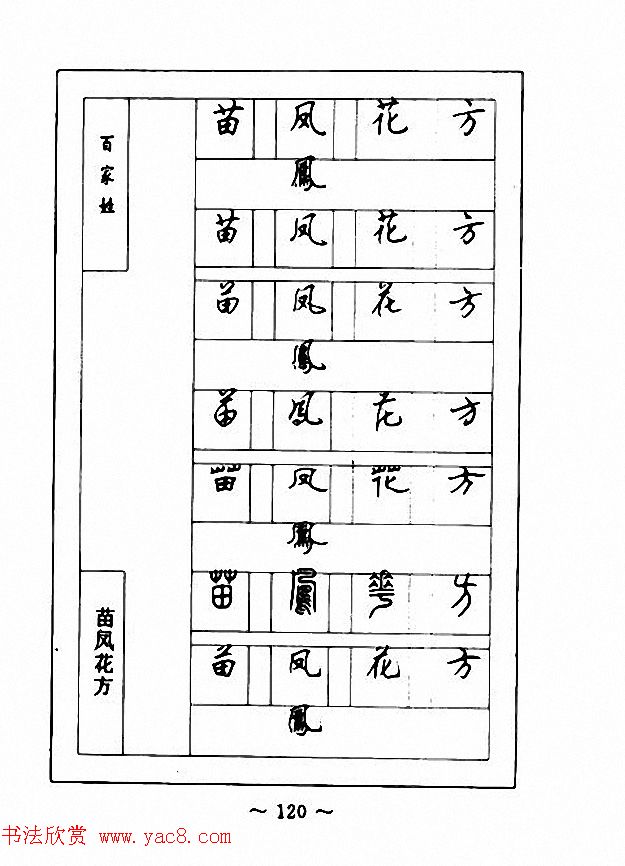 百家姓
苗凤花方
苗 凤 花 方
鳳
苗 凤 花 方
苗 凤 花 方
鳳
苗 凤 花 方
苗 凤 花 方
鳳
苗 鳳 華 方
苗 凤 花 方
鳳
～ 120 ～
书法欣赏 www.yac8.com